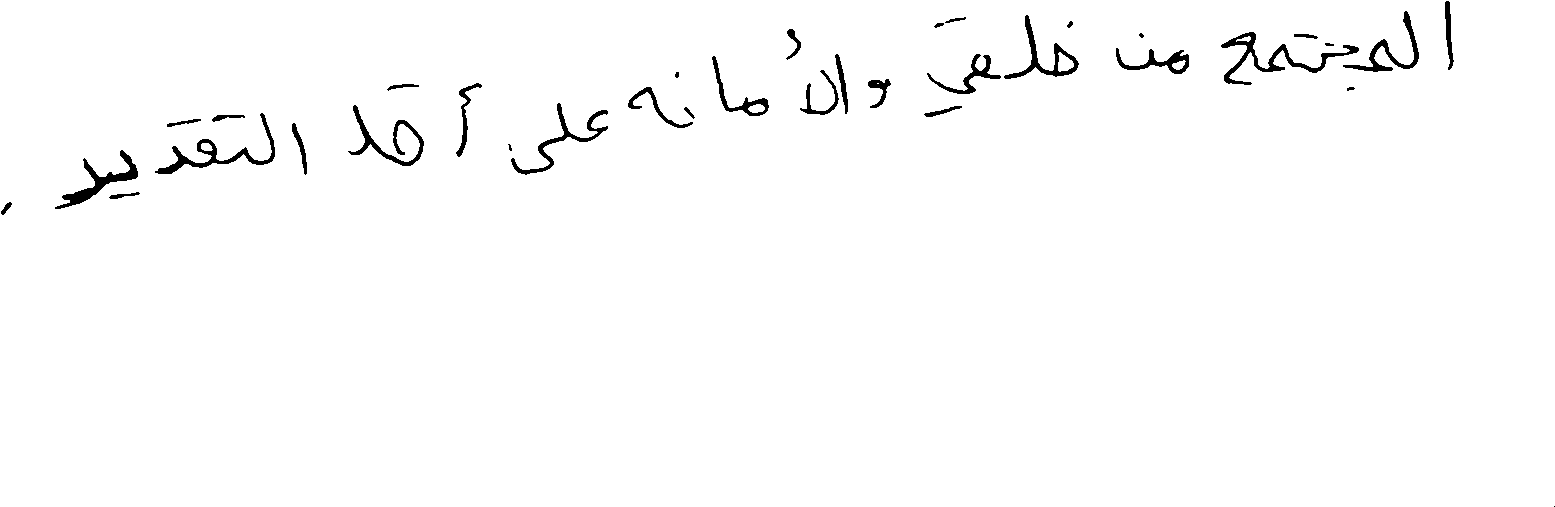 المجتمع من خلفي والأمانه على أقل التقدير .